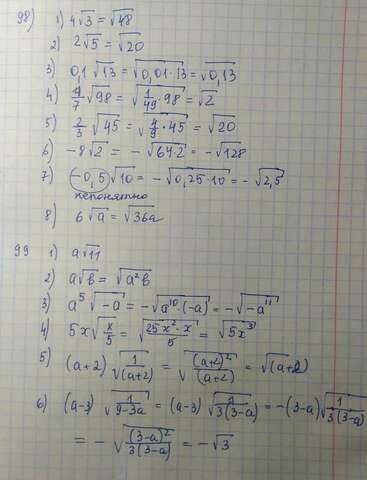 98) 1) 4√3 = √48
2) 2√5 = √20
3) 0,1 √13 = √(0,01·13) = √0,13
4) 1/7 √98 = √(1/49 · 98) = √2
5) 2/3 √45 = √(4/9 · 45) = √20
6) -8√2 = - √(64·2) = -√128
7) -0,5 √10 = -√(0,25·10) = -√2,5
непонятно
8) 6√a = √36a
99 1) a√11
2) a√b = √(a²b)
3) a⁵ √(-a) = -√(a¹⁰·(-a)) = -√(-a¹¹)
4) 5x √(x/5) = √(25x²·x/5) = √(5x³)
5) (a+2) √(1/(a+2)) = √((a+2)²/(a+2)) = √(a+2)
6) (a-3) √(1/(9-3a)) = (a-3) √(1/(3(3-a))) = -(3-a) √(1/(3(3-a)))
= - √((3-a)²/(3(3-a))) = -√3